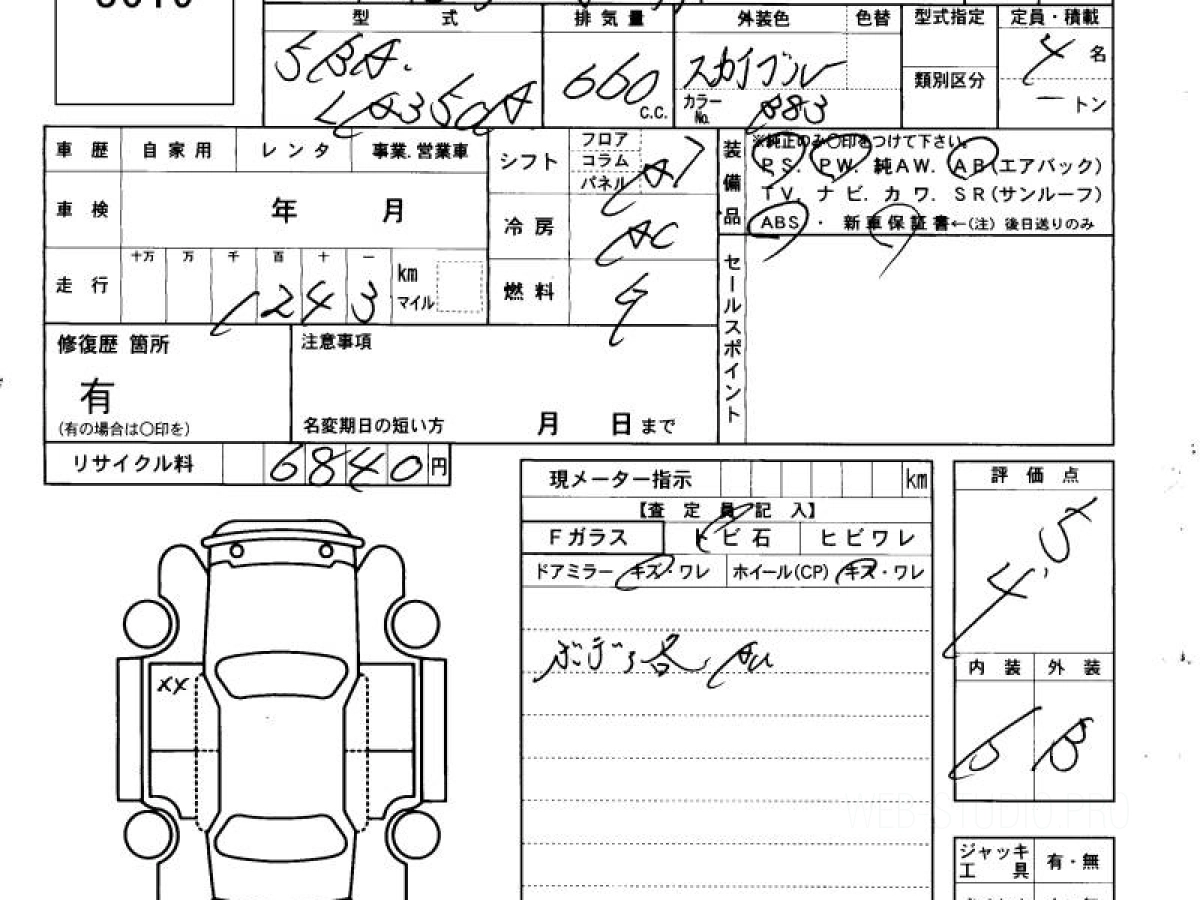 型 式 排 気 量 外装色 色替 型式指定 定員・積載
5BA. 660 スカイブルー 4 名
LA350A c.c. カラーNo. B83 類別区分 ー トン
車 歴 自 家 用 レ ン タ 事業.営業車 シフト フロア コラム パネル AT
装備品 ※純正のみ〇印をつけて下さい。
PS. PW. 純AW. AB(エアバック)
TV. ナ ビ. カ ワ. SR(サンルーフ)
ABS ・ 新車保証書←(注) 後日送りのみ
車 検 年 月 冷 房 AC
走 行 十万 万 千 百 十 一 km
1243 マイル 燃 料
セールスポイント
修復歴 箇所 注意事項
有
(有の場合は〇印を) 名変期日の短い方 月 日まで
リサイクル料 6840 円
現メーター指示 km 評 価 点
【査 定 員 記 入】
Fガラス トビ石 ヒビワレ 4.5
ドアミラー キズ・ワレ ホイール(CP) キズ・ワレ
XX
内 装 外 装
B
WEB-STUDIO.PRO
ジャッキ 工 具 有・無